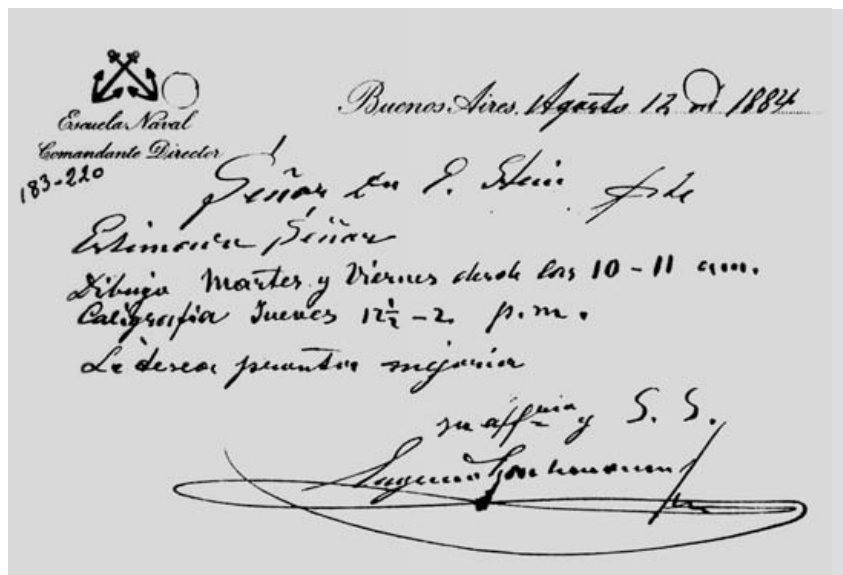 Escuela Naval
Comandante Director
Buenos Aires, Agosto 12 de 1884
183-220
Señor Dn E. Stein Pte
Estimado Señor
Dibujo Martes y Viernes desde las 10 - 11 a.m.
Caligrafia Jueves 12½ - 2 p.m.
Le desea pronta mejoria
su aff y S. S.
Eugenio